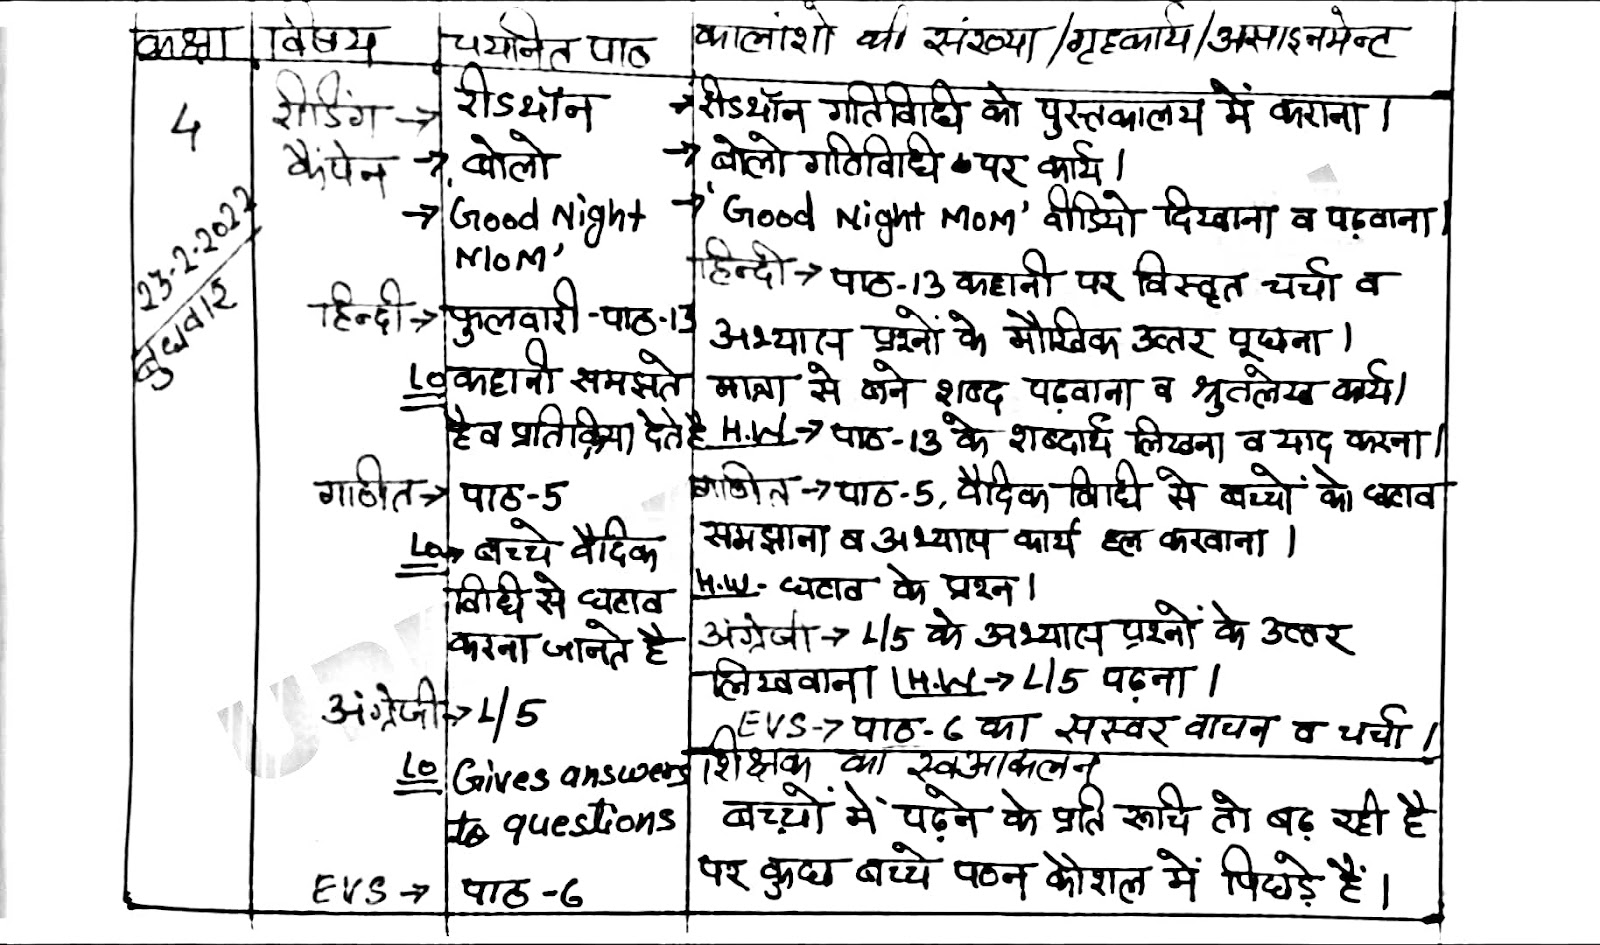 कक्षा | विषय | चयनित पाठ | कालांशो की संख्या/गृहकार्य/असाइनमेन्ट
4
23-2-2022
बुधवार
रीडिंग → रीडथॉन → रीडथॉन गतिविधि को पुस्तकालय में कराना।
कैंपेन → बोलो → बोलो गतिविधि पर कार्य।
→ 'Good Night → 'Good Night MOM' वीडियो दिखाना व पढ़वाना।
MOM'
हिन्दी → फुलवारी-पाठ-13
LO कहानी समझते
है व प्रतिक्रिया देते है
हिन्दी → पाठ-13 कहानी पर विस्तृत चर्चा व
अभ्यास प्रश्नों के मौखिक उत्तर पूछना।
मात्रा से बने शब्द पढ़वाना व श्रुतलेख कार्य।
H.W → पाठ-13 के शब्दार्थ लिखना व याद करना।
गणित → पाठ-5
LO → बच्चे वैदिक
विधि से घटाव
करना जानते है
गणित → पाठ-5, वैदिक विधि से बच्चों को घटाव
समझाना व अभ्यास कार्य हल करवाना।
H.W. - घटाव के प्रश्न।
अंग्रेजी → L/5
LO Gives answers
to questions
अंग्रेजी → L/5 के अभ्यास प्रश्नों के उत्तर
लिखवाना। H.W → L/5 पढ़ना।
EVS → पाठ-6
EVS → पाठ-6 का सस्वर वाचन व चर्चा।
शिक्षक का स्वआकलन
बच्चों में पढ़ने के प्रति रूचि तो बढ़ रही है
पर कुछ बच्चे पठन कौशल में पिछड़े हैं।